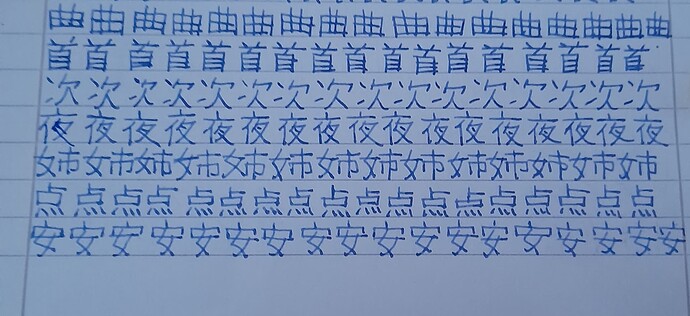 曲曲曲曲曲曲曲曲曲曲曲曲曲曲曲曲曲
首首首首首首首首首首首首首首首首首
次次次次次次次次次次次次次次次次
夜夜夜夜夜夜夜夜夜夜夜夜夜夜夜夜夜
姉姉姉姉姉姉姉姉姉姉姉姉姉姉
点点点点点点点点点点点点点点点点点点
安安安安安安安安安安安安安安安安安安